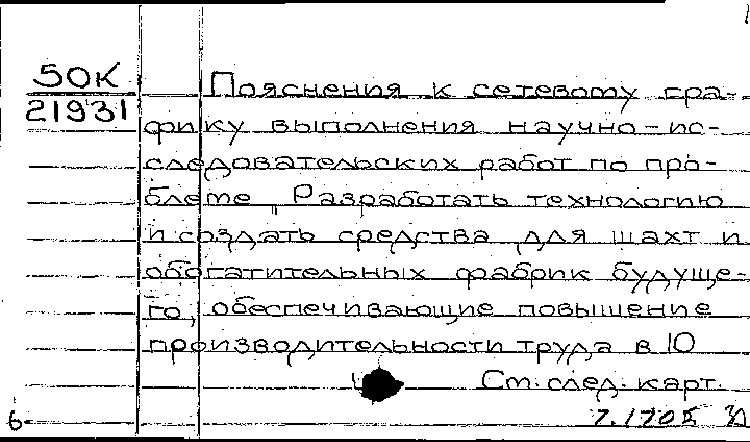 50К
21931
Пояснения к сетевому гра-
фику выполнения научно-ис-
следовательских работ по про-
блеме „Разработать технологию
и создать средства для шахт и
обогатительных фабрик будуще-
го, обеспечивающие повышение
производительности труда в 10
См. след. карт.